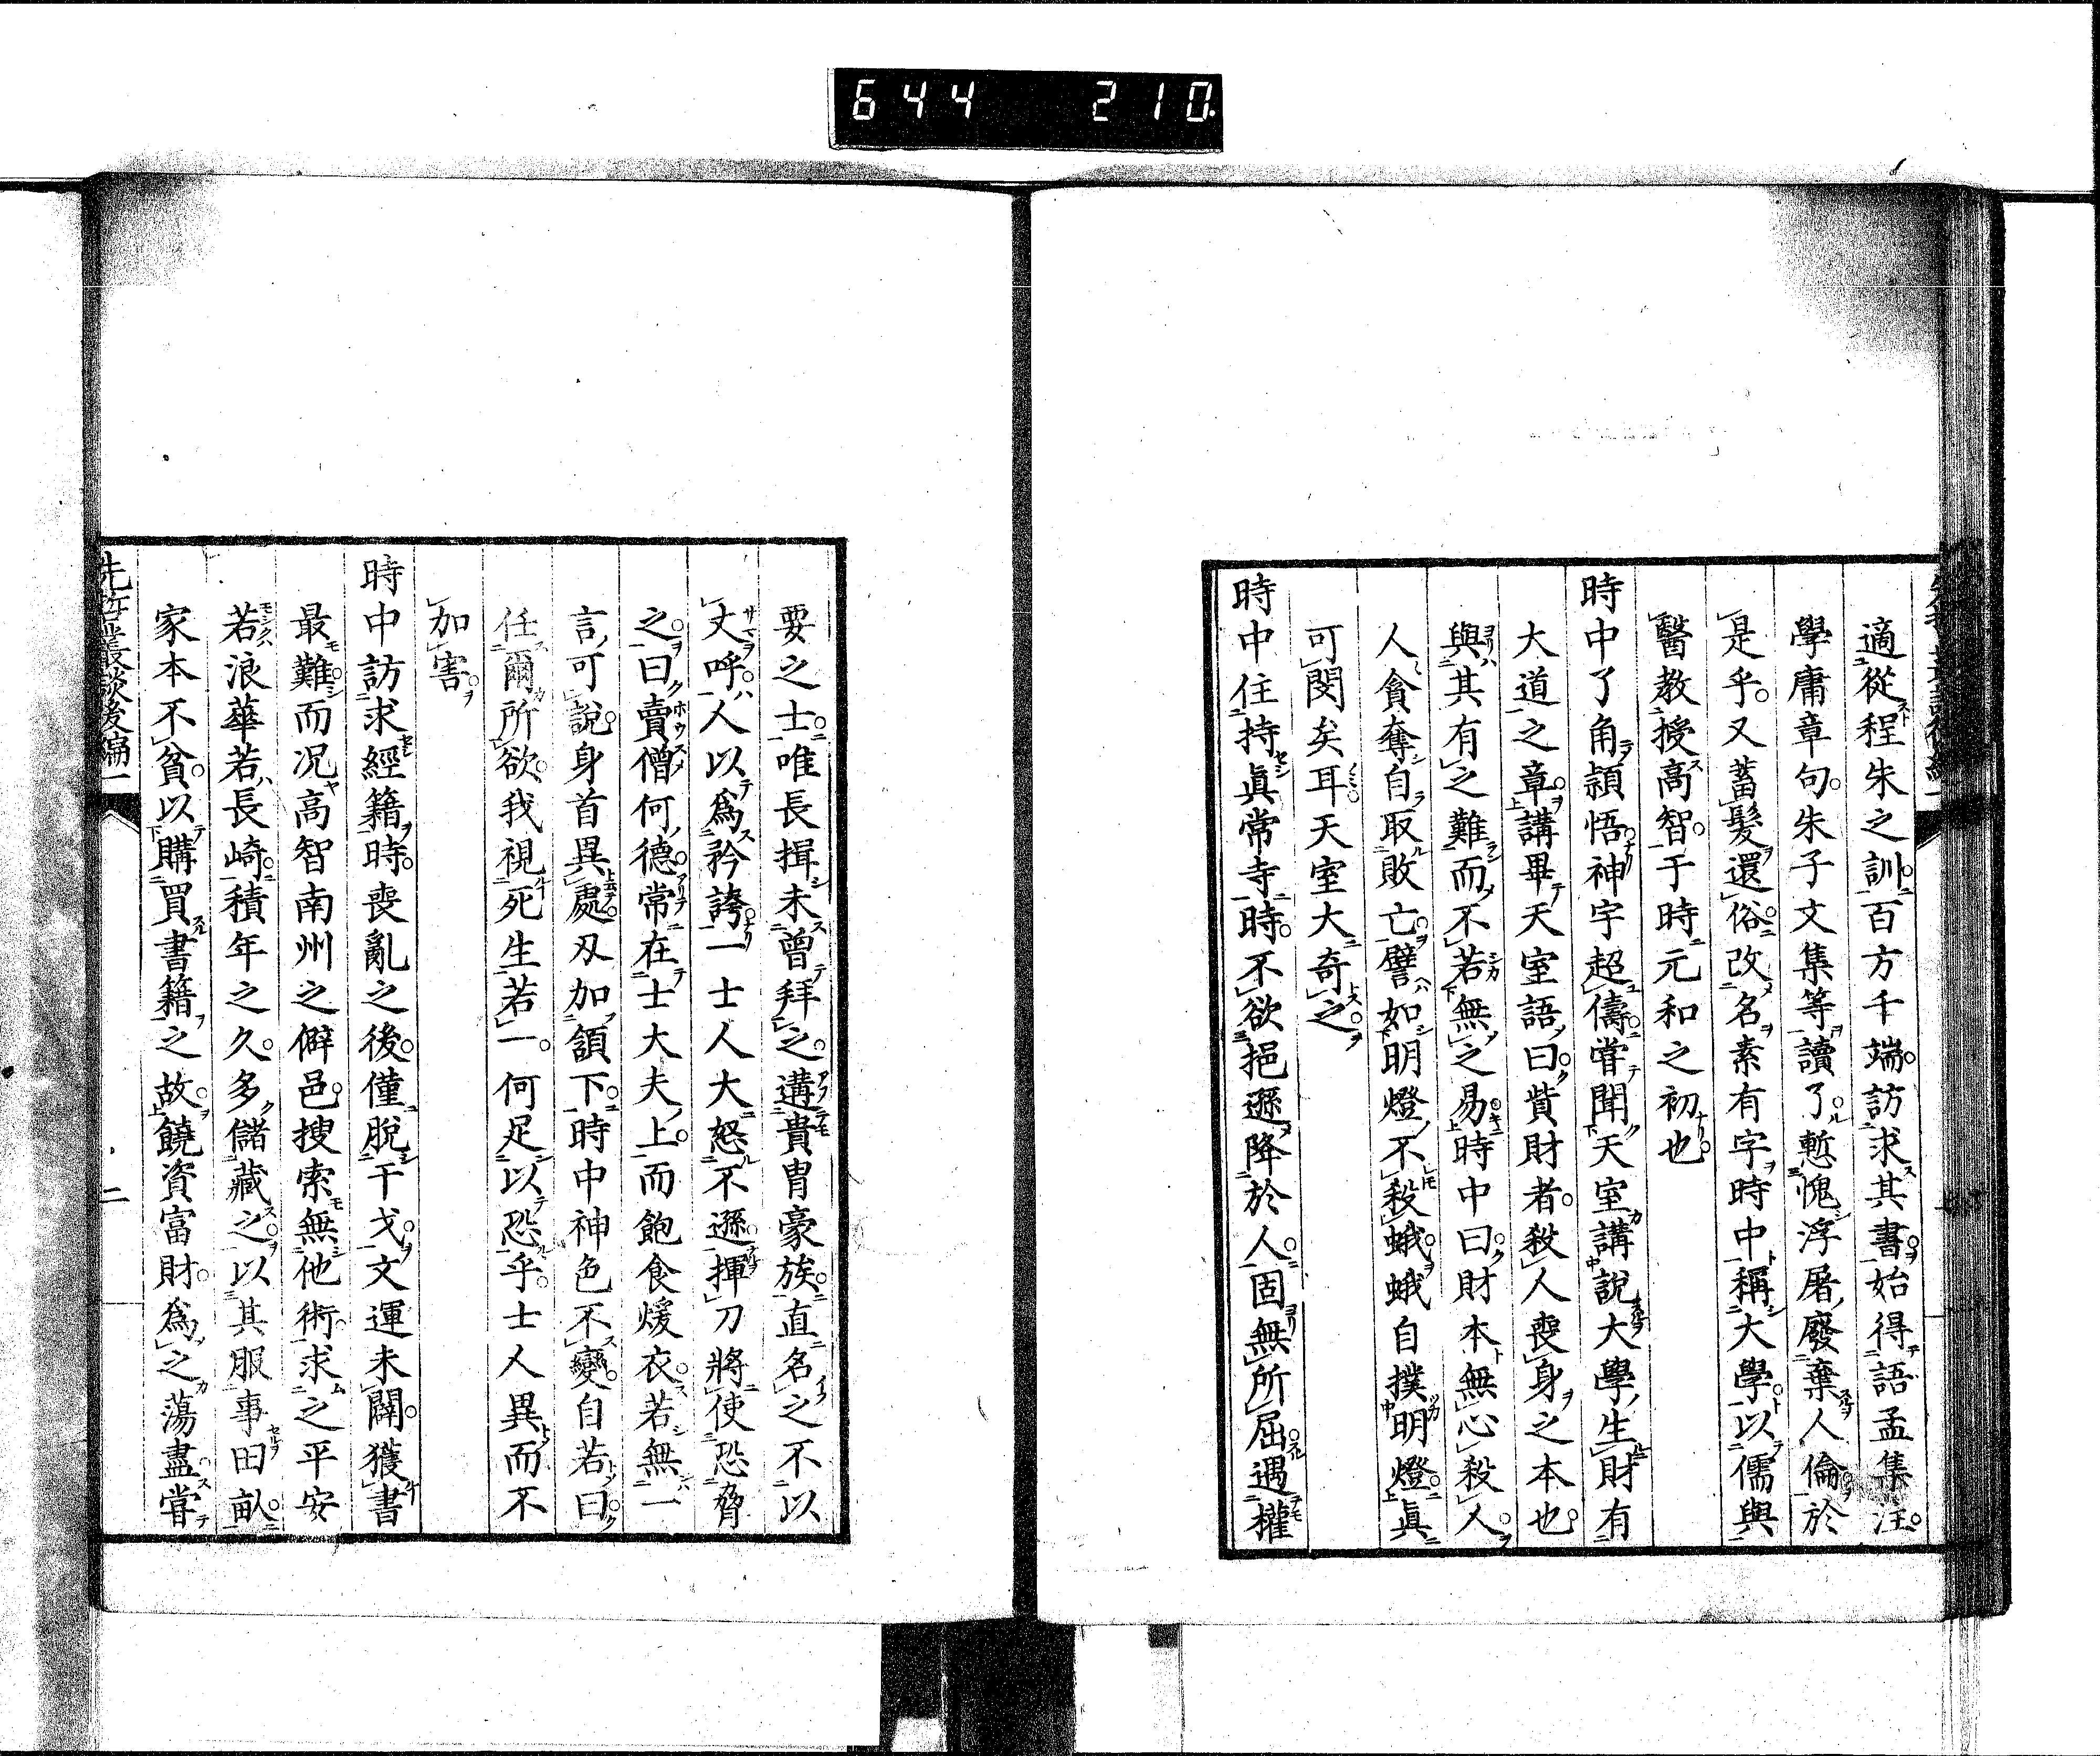 644 210
適從程朱之訓百方千端訪求其書始得語孟集注
學庸章句朱子文集等讀了慙愧浮屠廢棄人倫於
是乎又蓄髮還俗改名素有字時中稱大學以儒與
醫教授高智于時元和之初也
時中了角頴悟神宇超儔甞聞天室講說大學生財有
大道之章講畢天室語曰貲財者殺人喪身之本也
與其有之難而不若無之易時中曰財本無心殺人
人貪奪自取敗亡譬如明燈不殺蛾蛾自撲明燈眞
可閔矣耳天室大奇之
時中住持眞常寺時不欲挹遜降於人固無所屈遇權
要之士唯長揖未曾拜之遘貴冑豪族直名之不以
丈呼人以爲矜誇一士人大怒不遜揮刀將使恐脅
之曰賣僧何德常在士大夫上而飽食煖衣若無一
言可說身首異處刄加頷下時中神色不變自若曰
任爾所欲我視死生若一何足以恐乎士人異而不
加害
時中訪求經籍時喪亂之後僅脫干戈文運未闢獲書
最難而况高智南州之僻邑搜索無他術求之平安
若浪華若長崎積年之久多儲藏之以其服事田畝
家本不貧以購買書籍之故饒資富財爲之蕩盡甞
先哲叢談後編一
二